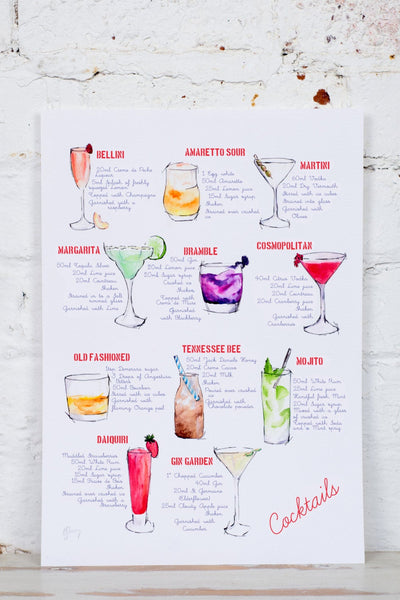 BELLINI
20ml Creme de Peche
Liqueur
5ml Splash of freshly
squeezed lemon
Topped with Champagne
Garnished with a
raspberry
AMARETTO SOUR
1 Egg white
50ml Amaretto
25ml Lemon juice
15ml Sugar syrup
Shaken
Strained over crushed
ice
MARTINI
50ml Vodka
20ml Dry Vermouth
Stirred with ice cubes
Strained into glass
Garnished with
Olives
MARGARITA
50ml Tequila Silver
20ml Lime juice
20ml Cointreau
Shaken
Strained in to a Salt
rimmed glass
Garnished with Lime
BRAMBLE
50ml Gin
20ml Lemon juice
20ml Sugar syrup
Crushed ice
Shaken
Topped with
Creme de Mure
Garnished
with Blackberry
COSMOPOLITAN
40ml Citrus Vodka
20ml Cointreau
20ml Lime juice
20ml Cranberry juice
Shaken
Garnished with
Cranberries
OLD FASHIONED
Demerara sugar
3 Drops of Angostura
Bitters
50ml Bourbon
Stirred with ice cubes
Garnished with a
flaming Orange peel
TENNESSEE BEE
50ml Jack Daniels Honey
20ml Creme Cacao
20ml Milk
Shaken
Poured over crushed
ice
Garnished with
Chocolate powder
MOJITO
50ml White Rum
25ml Lime juice
Handful fresh Mint
20ml Sugar syrup
Mixed with a glass
of crushed ice
Topped with Soda
and a Mint sprig
DAIQUIRI
Muddled Strawberries
50ml White Rum
25ml Lime juice
15ml Sugar syrup
Shaken
Strained over crushed ice
Garnished with a
Strawberry
GIN GARDEN
1" Chopped Cucumber
40ml Gin
20ml St Germain
(Elderflower)
25ml Cloudy Apple juice
Shaken
Garnished with
Cucumber
Cocktails